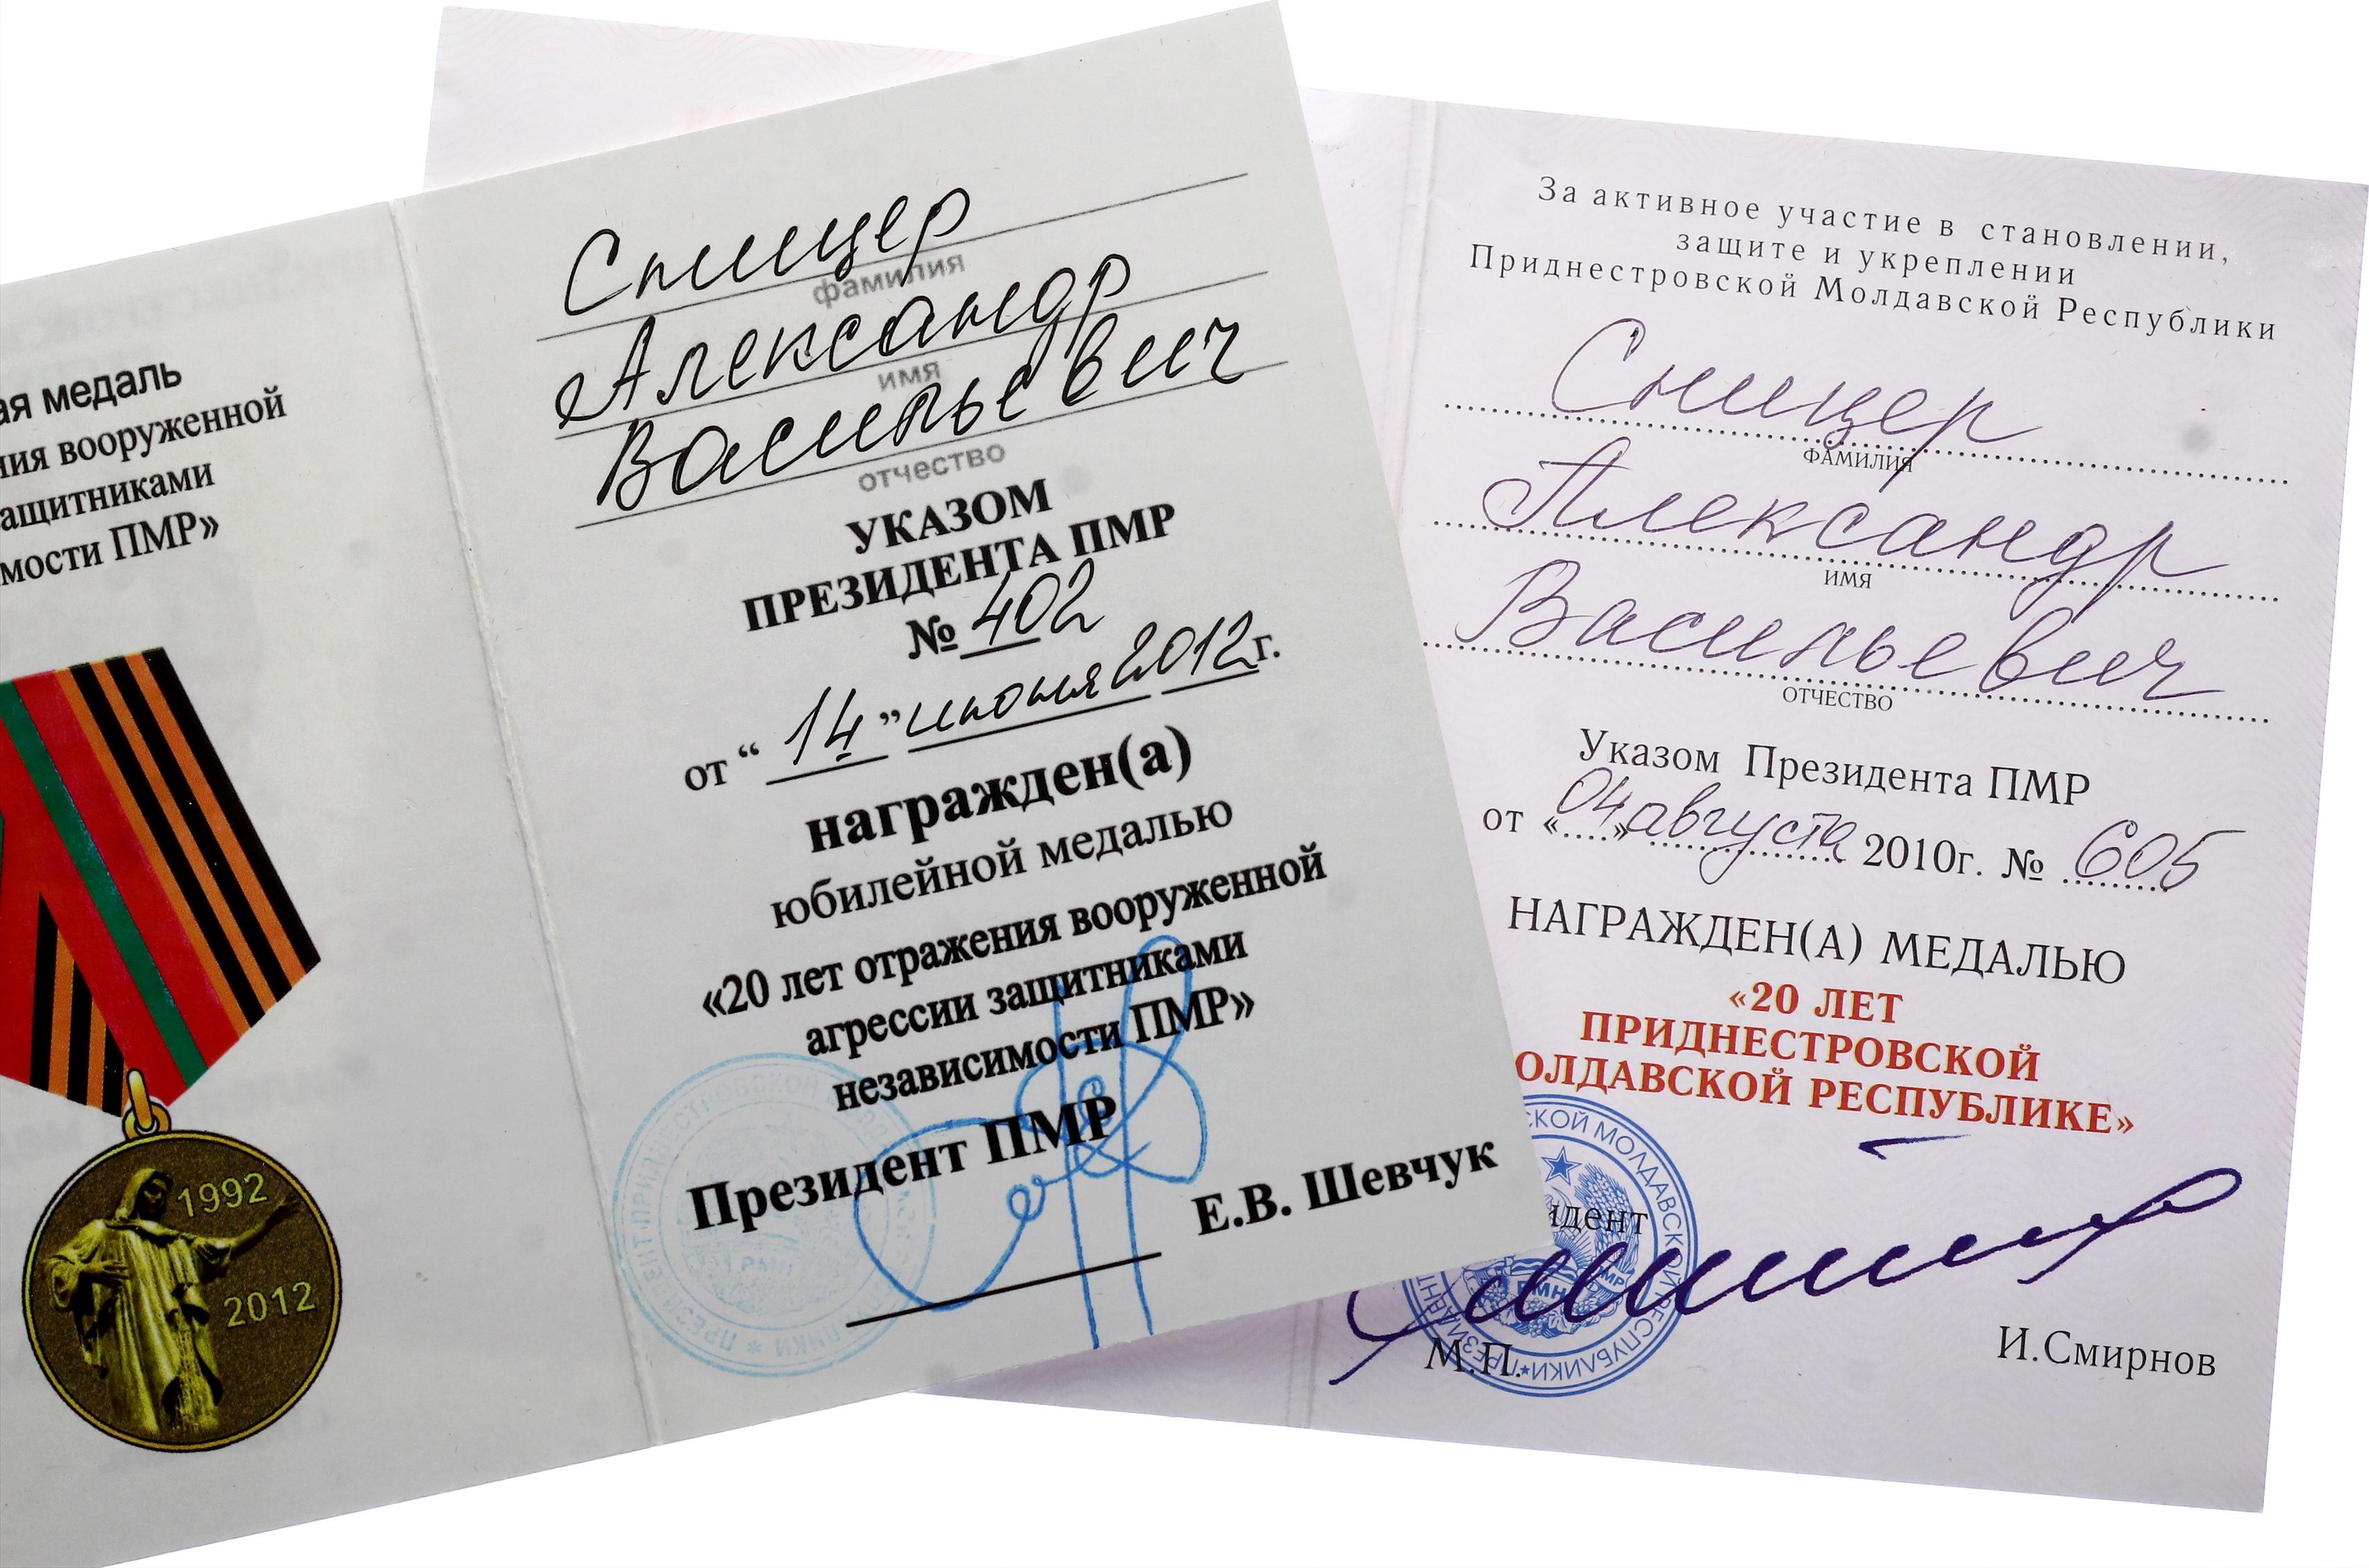 ая медаль
ния вооруженной
ащитниками
мости ПМР»
1992
2012
Спицер
фамилия
Александр
имя
Васильевич
отчество
УКАЗОМ
ПРЕЗИДЕНТА ПМР
№ 402
от “ 14 ” июня 2012 г.
награжден(а)
юбилейной медалью
«20 лет отражения вооруженной
агрессии защитниками
независимости ПМР»
Президент ПМР
Е.В. Шевчук
За активное участие в становлении,
защите и укреплении
Приднестровской Молдавской Республики
Спицер
ФАМИЛИЯ
Александр
ИМЯ
Васильевич
ОТЧЕСТВО
Указом Президента ПМР
от «04» августа 2010г. № 605
НАГРАЖДЕН(А) МЕДАЛЬЮ
«20 ЛЕТ
ПРИДНЕСТРОВСКОЙ
ОЛДАВСКОЙ РЕСПУБЛИКЕ»
СКОЙ МОЛДАВСКОЙ РЕСПУБЛИКИ * ПРЕЗИДЕНТ
идент
М.П.
И.Смирнов